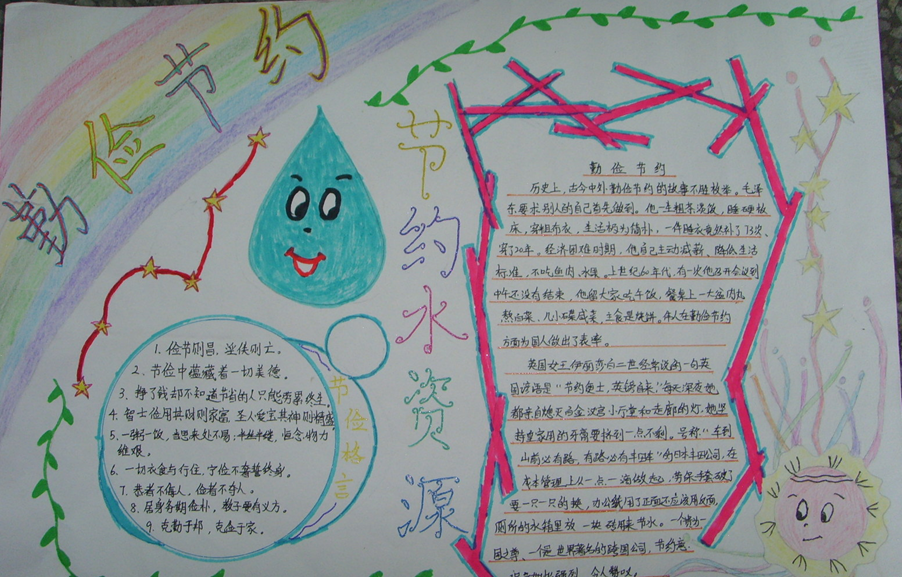 勤俭节约
节约水资源
节俭格言
1. 俭节则昌，淫佚则亡。
2. 节俭中蕴藏着一切美德。
3. 挣了钱却不知道节省的人只能劳累终生。
4. 智士俭用其财则家富 圣人爱宝其神则精盛
5. 一粥一饭，当思来处不易；半丝半缕，恒念物力
维艰。
6. 一切衣食与行住，宁俭不奢誓终身。
7. 恭者不侮人，俭者不夺人。
8. 居身务期俭朴，教子要有义方。
9. 克勤于邦，克俭于家。
勤俭节约
历史上，古今中外勤俭节约的故事不胜枚举。毛泽
东要求别人的自己首先做到。他一生粗茶淡饭，睡硬板
床，穿粗布衣，生活极为简朴，一件睡衣竟然补了73次、
穿了20年。经济困难时期，他自己主动减薪、降低生活
标准，不吃鱼肉、水果。上世纪60年代，有一次他召开会议到
中午还没有结束，他留大家吃午饭，餐桌上一大盆肉丸
熬白菜、几小碟咸菜，主食是烧饼。伟人在勤俭节约
方面为国人做出了表率。
英国女王伊丽莎白二世经常说的一句英
国谚语是“节约便士，英镑自来”，每天深夜她
都亲自熄灭白金汉宫小厅堂和走廊的灯，她坚
持皇家用的牙膏要挤到一点不剩。号称“车到
山前必有路，有路必有丰田车”的日本丰田公司，在
成本管理上从一点一滴做起，劳保手套破了
要一只一只的换，办公纸用了正面还应该用反面，
厕所的水箱里放一块砖用来节水。一个贵为一
国之尊，一个是世界著名的跨国公司，节约意